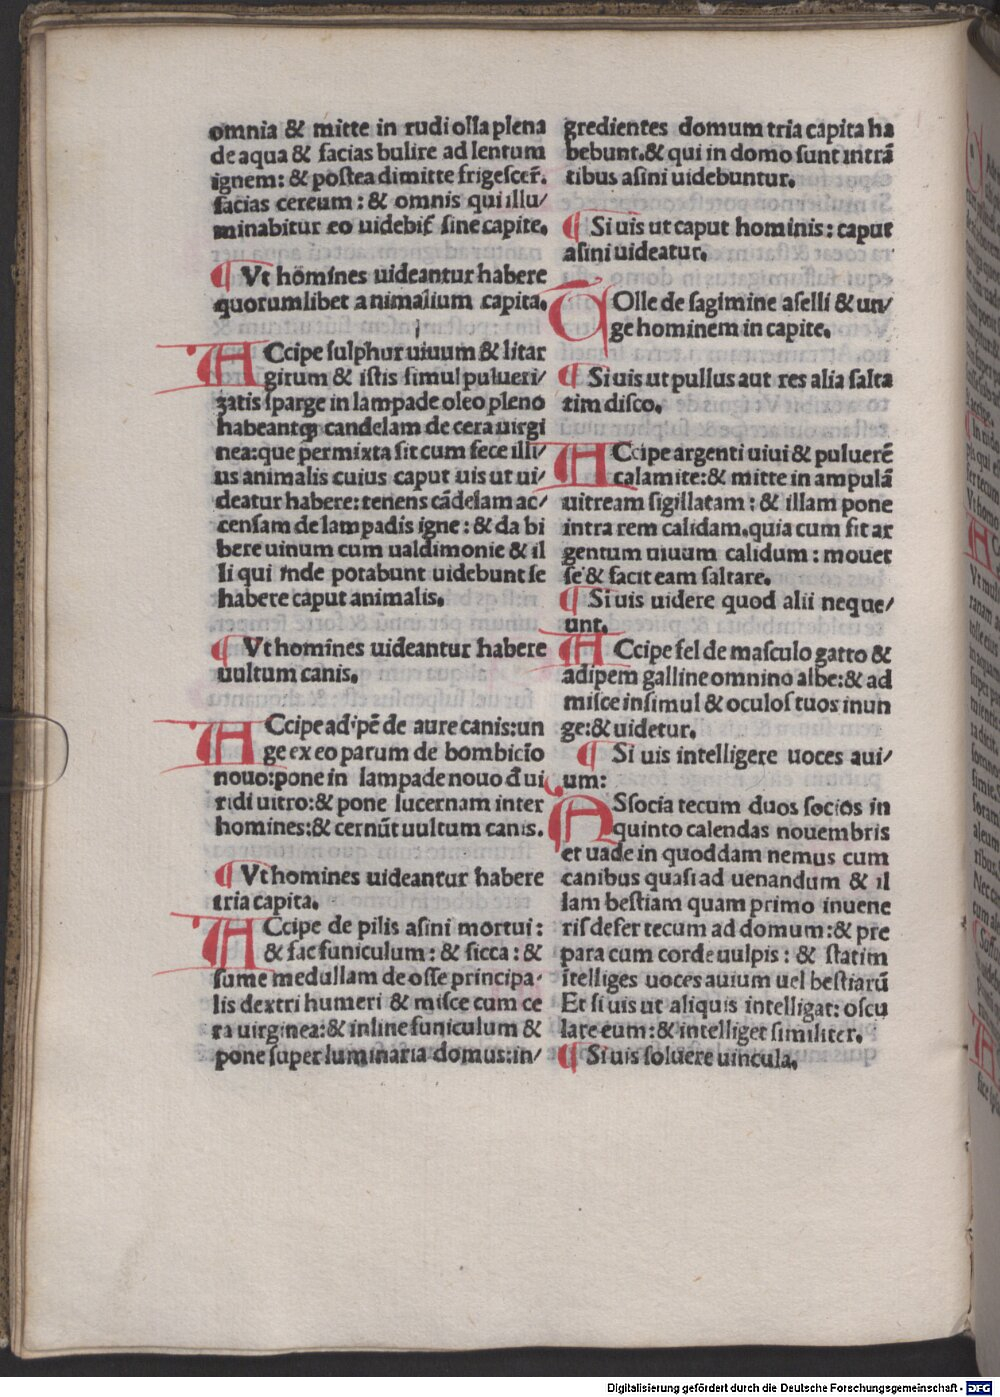 omnia & mitte in rudi olla plena
de aqua & facias bulire ad lentum
ignem: & postea dimitte frigescer̄.
facias cereum: & omnis qui illu/
minabitur eo uidebit̄ sine capite.
¶ Vt hōmines uideantur habere
quorumlibet animalium capita.
ACcipe sulphur uiuum & litar
girum & istis simul pulueri/
zatis sparge in lampade oleo pleno
habeantq; candelam de cera uirgi
nea: que permixta sit cum fece illi/
us animalis cuius caput uis ut ui/
deatur habere: tenens cādelam ac/
censam de lampadis igne: & da bi
bere uinum cum ualdimonie & il
li qui inde potabunt uidebunt se
habere caput animalis.
¶ Vt homines uideantur habere
uultum canis.
ACcipe adipē de aure canis: un
ge ex eo parum de bombicio
nouo: pone in lampade nouo đ ui
ridi uitro: & pone lucernam inter
homines: & cernūt uultum canis.
¶ Vt homines uideantur habere
tria capita.
ACcipe de pilis asini mortui:
& fac funiculum: & sicca: &
sume medullam de osse principa-
lis dextri humeri & misce cum ce
ra uirginea: & inline funiculum &
pone super luminaria domus: in/
gredientes domum tria capita ha
bebunt. & qui in domo sunt intrā
tibus asini uidebuntur.
¶ Si uis ut caput hominis: caput
asini uideatur.
TOlle de sagimine aselli & un/
ge hominem in capite.
¶ Si uis ut pullus aut res alia salta
tim disco.
ACcipe argenti uiui & puluerē
calamite: & mitte in ampulā
uitream sigillatam: & illam pone
intra rem calidam. quia cum fit ar
gentum uiuum calidum: mouet
se & facit eam saltare.
¶ Si uis uidere quod alii neque/
unt.
ACcipe fel de masculo gatto &
adipem galline omnino albe: & ad
misce insimul & oculos tuos inun
ge: & uidetur.
¶ Si uis intelligere uoces aui/
um:
ASsocia tecum duos socios in
quinto calendas nouembris
et uade in quoddam nemus cum
canibus quasi ad uenandum & il
lam bestiam quam primo inuene
ris defer tecum ad domum: & pre
para cum corde uulpis: & statim
ītelliges uoces auium uel bestiarū
Et si uis ut aliquis intelligat: oscu
lare eum: & intelliget similiter.
¶ Si uis soluere uincula.
Digitalisierung gefördert durch die Deutsche Forschungsgemeinschaft - DFG